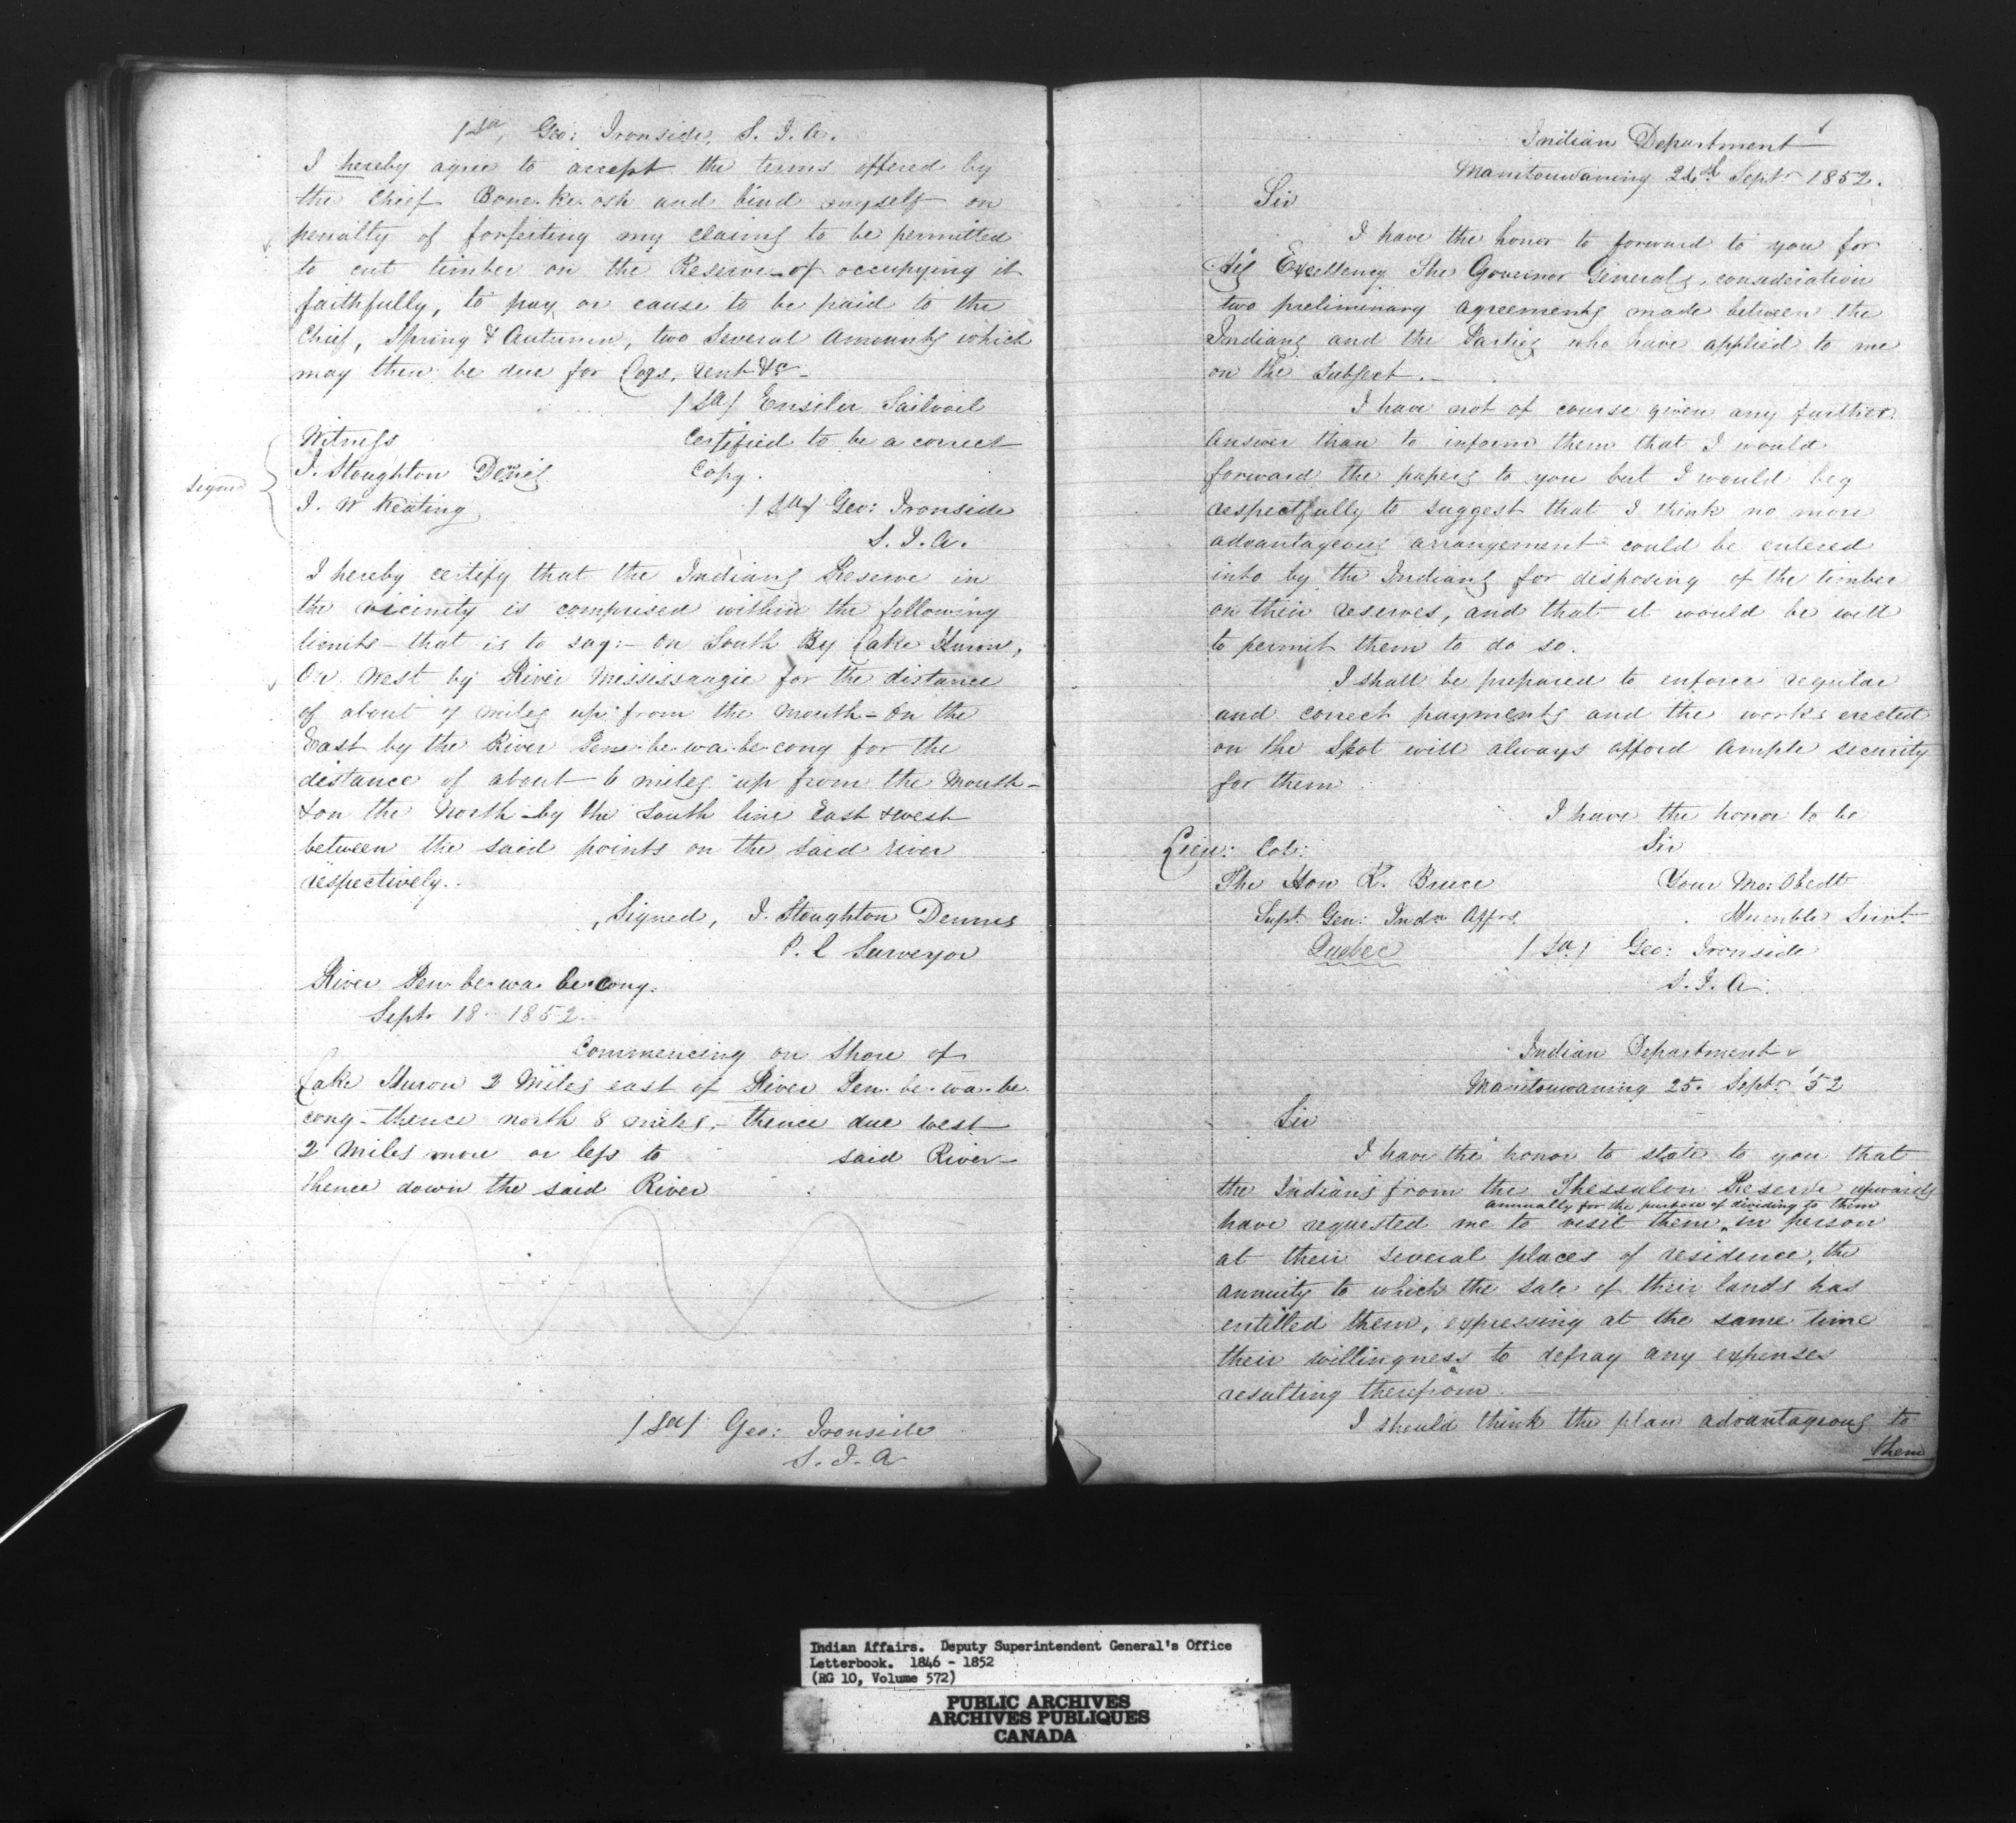 /Sd/ Geo: Ironside, S. I. A.
I hereby agree to accept the terms offered by
the Chief Bone-ke-osh and bind myself on
penalty of forfeiting my claims to be permitted
to cut timber on the Reserve - of occupying it
faithfully, to pay or cause to be paid to the
Chief, Spring & Autumn, two several amounts which
may then be due for Logs, rent &c -
/Sd/
Witness
Certified to be a correct
J. Stoughton Dennis
Copy.
signed
J. W Keating
/Sd/ Geo: Ironside
S. I. A.
I hereby certify that the Indians Reserve in
the vicinity is comprised within the following
limits - that is to say: - On South By Lake Huron,
On West by River Mississaugie for the distance
of about 7 miles up from the Mouth - On the
East by the River Pen-be-wa-be-cong for the
distance of about 6 miles up from the Mouth -
& on the North - by the South line East & West
between the said points on the said river
respectively.
Signed, J. Stoughton Dennis
P. L Surveyor
River Pen-be-wa-be-cong.
Septr 18 1852.
Commencing on Shore of
Lake Huron 2 Miles east of River Pen-be-wa-be
cong - thence north 8 miles, - thence due West
2 Miles more or less to said River -
thence down the said River
/Sd/ Geo: Ironside
S. I. A
Indian Department
Manitouwaning 24th Septr 1852.
Sir
I have the honor to forward to you for
His Excellency The Governor Generals, consideration
two preliminary agreements made between the
Indians and the Parties who have applied to me
on the subject. -
I have not of course given any further
answer than to inform them that I would
forward the papers to you but I would beg
respectfully to suggest that I think no more
advantageous arrangement could be entered
into by the Indians for disposing of the timber
on their reserves, and that it would be well
to permit them to do so.
I shall be prepared to enforce regular
and correct payments and the works erected
on the Spot will always afford ample security
for them
I have the honor to be
Lieu: Col: Sir
The Hon R. Bruce Your Mo: Obedt
Supt Gen: Indn Affrs. Humble Servt.
Quebec /Sd/ Geo: Ironside
S. I. A.
Indian Department
Manitouwaning 25. Septr '52
Sir
I have the honor to state to you that
the Indians from the Thessalon Reserve upwards
annually for the purpose of dividing to them
have requested me to visit them in person
at their several places of residence, the
annuity to which the sale of their lands has
entitled them, expressing at the same time
their willingness to defray any expenses
resulting therefrom.
I should think the plan advantageous to
them
Indian Affairs. Deputy Superintendent General's Office
Letterbook. 1846 - 1852
(RG 10, Volume 572)
PUBLIC ARCHIVES
ARCHIVES PUBLIQUES
CANADA